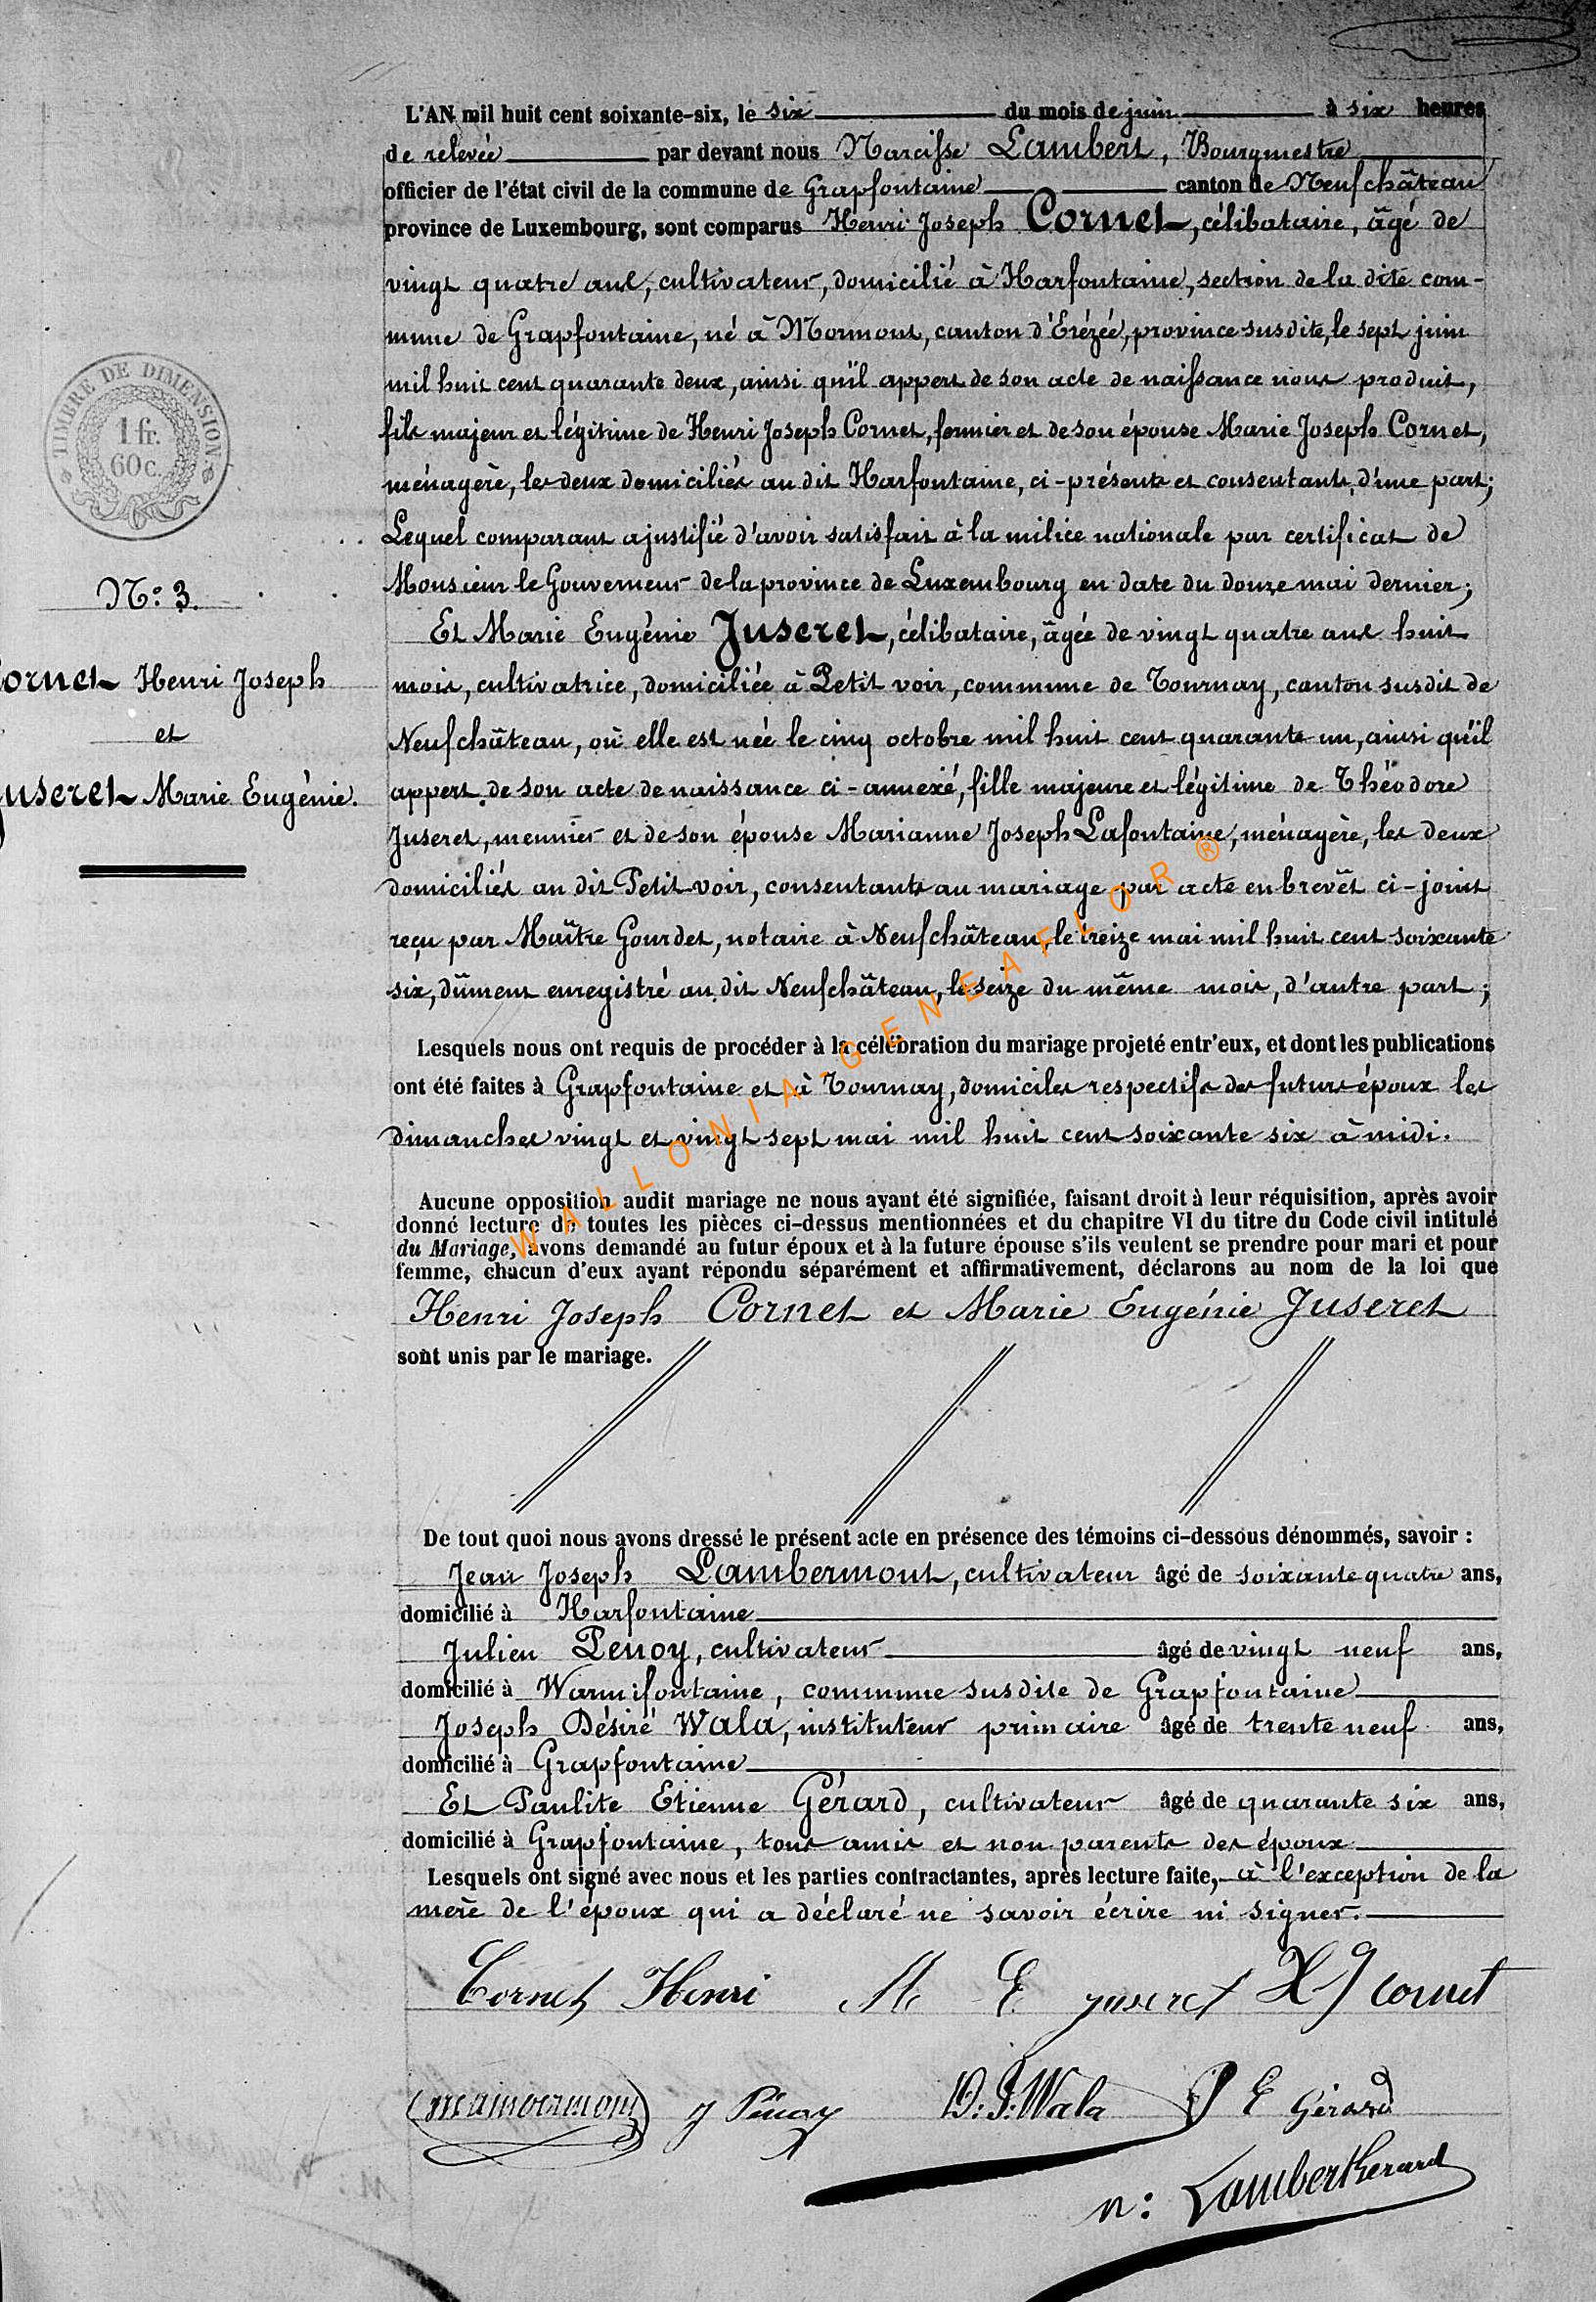 L'AN mil huit cent soixante-six, le six du mois de juin à six heures
de relevée par devant nous Narcisse Lambert, Bourgmestre
officier de l'état civil de la commune de Grapfontaine canton de Neufchâteau
province de Luxembourg, sont comparus Henri Joseph Cornet, célibataire, âgé de
vingt quatre ans, cultivateur, domicilié à Harfontaine, section de la dite com-
mune de Grapfontaine, né à Mormont, canton d'Erézée, province susdite, le sept juin
mil huit cent quarante deux, ainsi qu'il appert de son acte de naissance nous produit,
fils majeur et légitime de Henri Joseph Cornet, fermier et de son épouse Marie Joseph Cornet,
ménagère, les deux domiciliés au dit Harfontaine, ci-présents et consentants, d'une part;
Lequel comparant a justifié d'avoir satisfait à la milice nationale par certificat de
Monsieur le Gouverneur de la province de Luxembourg en date du douze mai dernier;
Et Marie Eugènie Juseret, célibataire, âgée de vingt quatre ans huit
mois, cultivatrice, domiciliée à Petit voir, commune de Tournay, canton susdit de
Neufchâteau, où elle est née le cinq octobre mil huit cent quarante un, ainsi qu'il
appert de son acte de naissance ci-annexé, fille majeure et légitime de Théodore
Juseret, meunier et de son épouse Marianne Joseph Lafontaine, ménagère, les deux
domiciliés au dit Petit voir, consentants au mariage par acte en brevêt ci-joint
reçu par Maître Gourdet, notaire à Neufchâteau, le treize mai mil huit cent soixante
six, dûment enregistré au dit Neufchâteau, le seize du même mois, d'autre part;
Lesquels nous ont requis de procéder à la célébration du mariage projeté entr'eux, et dont les publications
ont été faites à Grapfontaine et à Tournay, domiciles respectifs des futurs époux les
dimanches vingt et vingt sept mai mil huit cent soixante six à midi.
Aucune opposition audit mariage ne nous ayant été signifiée, faisant droit à leur réquisition, après avoir
donné lecture de toutes les pièces ci-dessus mentionnées et du chapitre VI du titre du Code civil intitulé
du Mariage, avons demandé au futur époux et à la future épouse s'ils veulent se prendre pour mari et pour
femme, chacun d'eux ayant répondu séparément et affirmativement, déclarons au nom de la loi que
Henri Joseph Cornet et Marie Eugénie Juseret
sont unis par le mariage.
De tout quoi nous avons dressé le présent acte en présence des témoins ci-dessous dénommés, savoir :
Jean Joseph Lambermont, cultivateur âgé de soixante quatre ans,
domicilié à Harfontaine
Julien Penoy, cultivateur âgé de vingt neuf ans,
domicilié à Warmifontaine, commune susdite de Grapfontaine
Joseph Désiré Wala, instituteur primaire âgé de trente neuf ans,
domicilié à Grapfontaine
Et Paulite Etienne Gérard, cultivateur âgé de quarante six ans,
domicilié à Grapfontaine, tous amis et non parents des époux
Lesquels ont signé avec nous et les parties contractantes, après lecture faite, à l'exception de la
mère de l'époux qui a déclaré ne savoir écrire ni signer.
Cornet Henri M E juseret H J cornet
J Pénoy D. J. Wala P E Gérard
N: Lambert Gerard
TIMBRE DE DIMENSION
1 fr.
60 c.
N° 3.
Cornet Henri Joseph
et
Juseret Marie Eugènie.
WALLONIA-GENEAFLOR ®